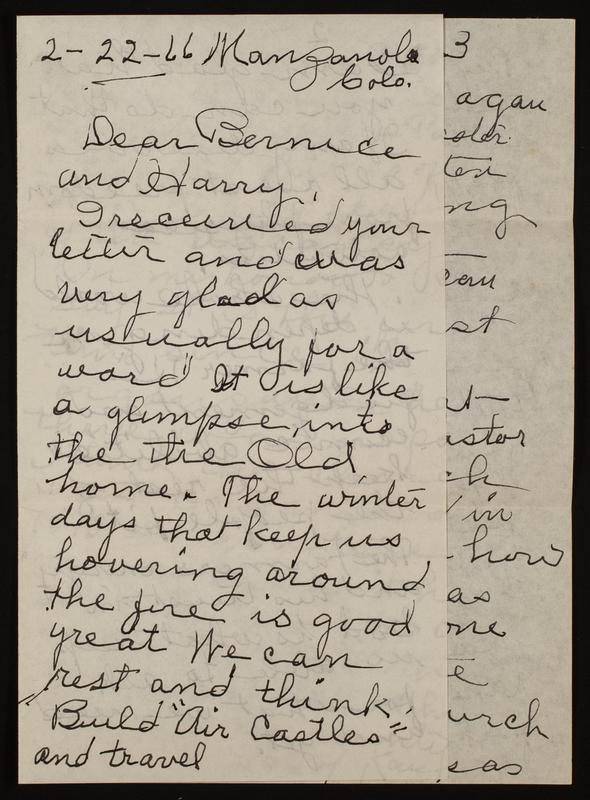 2-22-66 Manzanola
Colo.
Dear Bernice
and Harry,
I receuived your
letter and was
very glad as
usually for a
word" It is like
a glimpse into
the the Old
home. The winter
days that keep us
hovering around
the fire is good
great We can
rest and think,
Build "Air Castles"
and travel
3
agau
ten
ng
eau
st
astor
ch
in
how
as
one
te
urch
sas